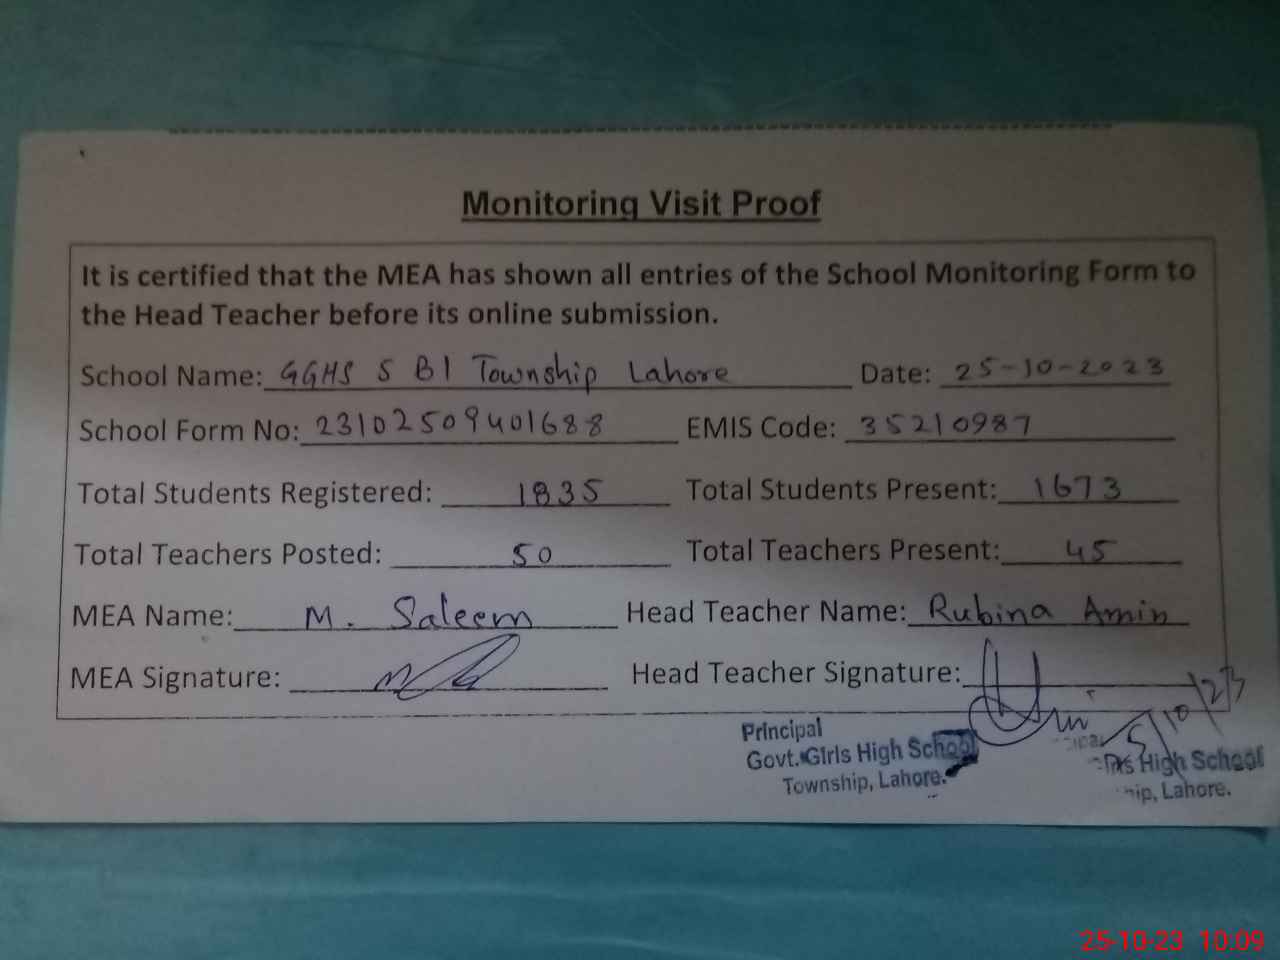 Monitoring Visit Proof
It is certified that the MEA has shown all entries of the School Monitoring Form to
the Head Teacher before its online submission.
School Name: GGHS S B1 Township Lahore Date: 25-10-2023
School Form No: 23102509401688 EMIS Code: 35210987
Total Students Registered: 1835 Total Students Present: 1673
Total Teachers Posted: 50 Total Teachers Present: 45
MEA Name: M. Saleem Head Teacher Name: Rubina Amin
MEA Signature: Head Teacher Signature:
Principal
Govt. Girls High School
Township, Lahore.
High School
Lahore.
25-10-23 10:09